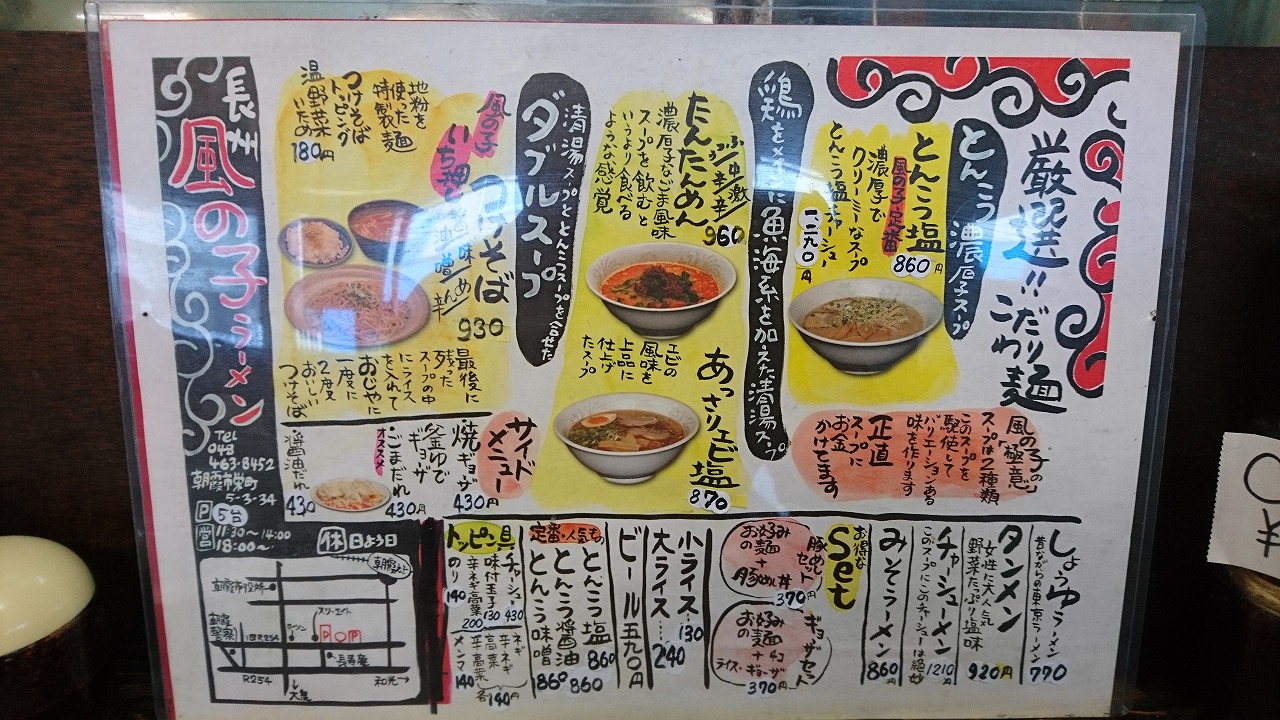 厳選!!こだわり麺
とんこつ濃厚スープ
とんこつ塩
860円
風の子定番
濃厚で
クリーミーなスープ
とんこつ塩チャーシュー
一、二九〇円
風の子の「極意」
スープは2種類
このスープを
駆使して
バリエーションある
味を作ります
正直
スープに
お金
かけてます
鶏を
魚海系を加えた清湯スープ
たんたんめん
960
濃厚なごま風味
スープを飲むと
いうより食べる
ような感覚
あっさりエビ塩
870
エビの
風味を
上品に
仕上げ
たスープ
ダブルスープ
清湯スープととんこつスープを合せた
風の子
いち押
つけそば
930
地粉を
使った
特製麺
つけそば
トッピング
温野菜
いため
180円
最後に
残った
スープの中
にライス
を入れて
おじやに
一度に
2度
おいしい
つけそば
サイドメニュー
焼ギョーザ
430円
釜ゆで
ギョーザ
・ごまだれ
430円
オススメ
・醤油だれ
430
しょうゆラーメン
昔ながらの東京ラーメン
770
タンメン
女性に大人気
野菜たっぷり塩味
920円
チャーシューメン
このスープにこのチャーシューは絶妙
1210
みそラーメン
860円
お得な
Set
豚めしセット
お好み
の麺
+
豚めし丼
370円
ギョーザセット
お好み
の麺
+
ライス
370円
小ライス…130
大ライス…240
ビール五九〇円
定番・人気もの
とんこつ塩
860
とんこつ醤油
860
とんこつ味噌
860
トッピン具
チャーシュー
430
味付玉子
130
辛ネギ高菜
200
のり
140
ネギ
辛ネギ
高菜
辛高菜
各140円
メンマ
140
長州
風の子ラーメン
Tel
048
463-8452
朝霞市栄町
5-3-34
P 5台
営 11:30〜14:00
18:00〜
休 日よう日
朝霞市役所
朝霞
警察
旧R254
ローソン
P
長寿庵
R254
↓大泉
和光→
¥